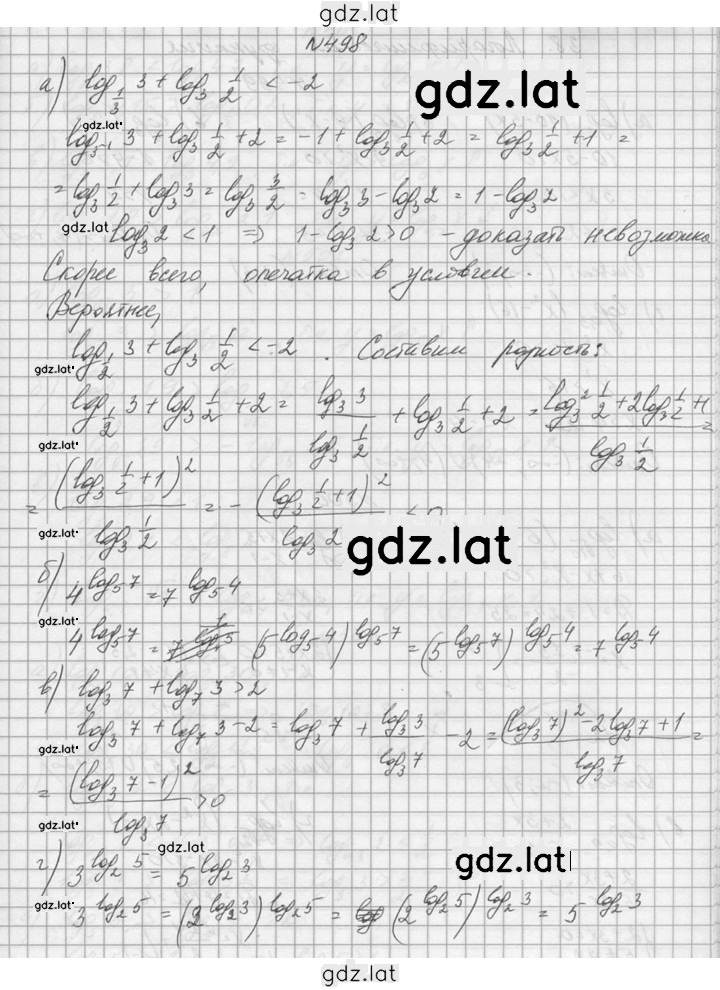 gdz.lat
N498
а) log_{1/3} 3 + log_3 1/2 < -2
gdz.lat
gdz.lat
log_{3^{-1}} 3 + log_3 1/2 + 2 = -1 + log_3 1/2 + 2 = log_3 1/2 + 1 =
= log_3 1/2 + log_3 3 = log_3 3/2 = log_3 3 - log_3 2 = 1 - log_3 2
gdz.lat log_3 2 < 1 ⇒ 1 - log_3 2 > 0 - доказать невозможно
Скорее всего, опечатка в условии.
Вероятнее,
log_{1/2} 3 + log_3 1/2 < -2 . Составим разность:
gdz.lat
log_{1/2} 3 + log_3 1/2 + 2 = (log_3 3)/(log_3 1/2) + log_3 1/2 + 2 = (log_3^2 1/2 + 2log_3 1/2 + 1)/(log_3 1/2) =
gdz.lat
= (log_3 1/2 + 1)^2/(log_3 1/2) = - (log_3 1/2 + 1)^2/(log_3 2) < 0
gdz.lat
gdz.lat
б) 4^{log_5 7} = 7^{log_5 4}
gdz.lat
4^{log_5 7} = (5^{log_5 4})^{log_5 7} = (5^{log_5 7})^{log_5 4} = 7^{log_5 4}
в) log_3 7 + log_7 3 > 2
log_3 7 + log_7 3 - 2 = log_3 7 + (log_3 3)/(log_3 7) - 2 = ((log_3 7)^2 - 2log_3 7 + 1)/(log_3 7) =
gdz.lat
= (log_3 7 - 1)^2/(log_3 7) > 0
gdz.lat
г) 3^{log_2 5} = 5^{log_2 3}
gdz.lat
gdz.lat
3^{log_2 5} = (2^{log_2 3})^{log_2 5} = (2^{log_2 5})^{log_2 3} = 5^{log_2 3}
gdz.lat